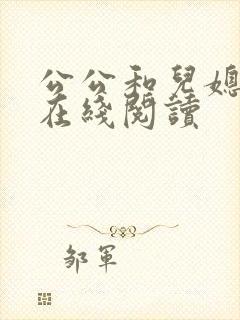 公公和兒媳
在綫閱讀
鄒軍